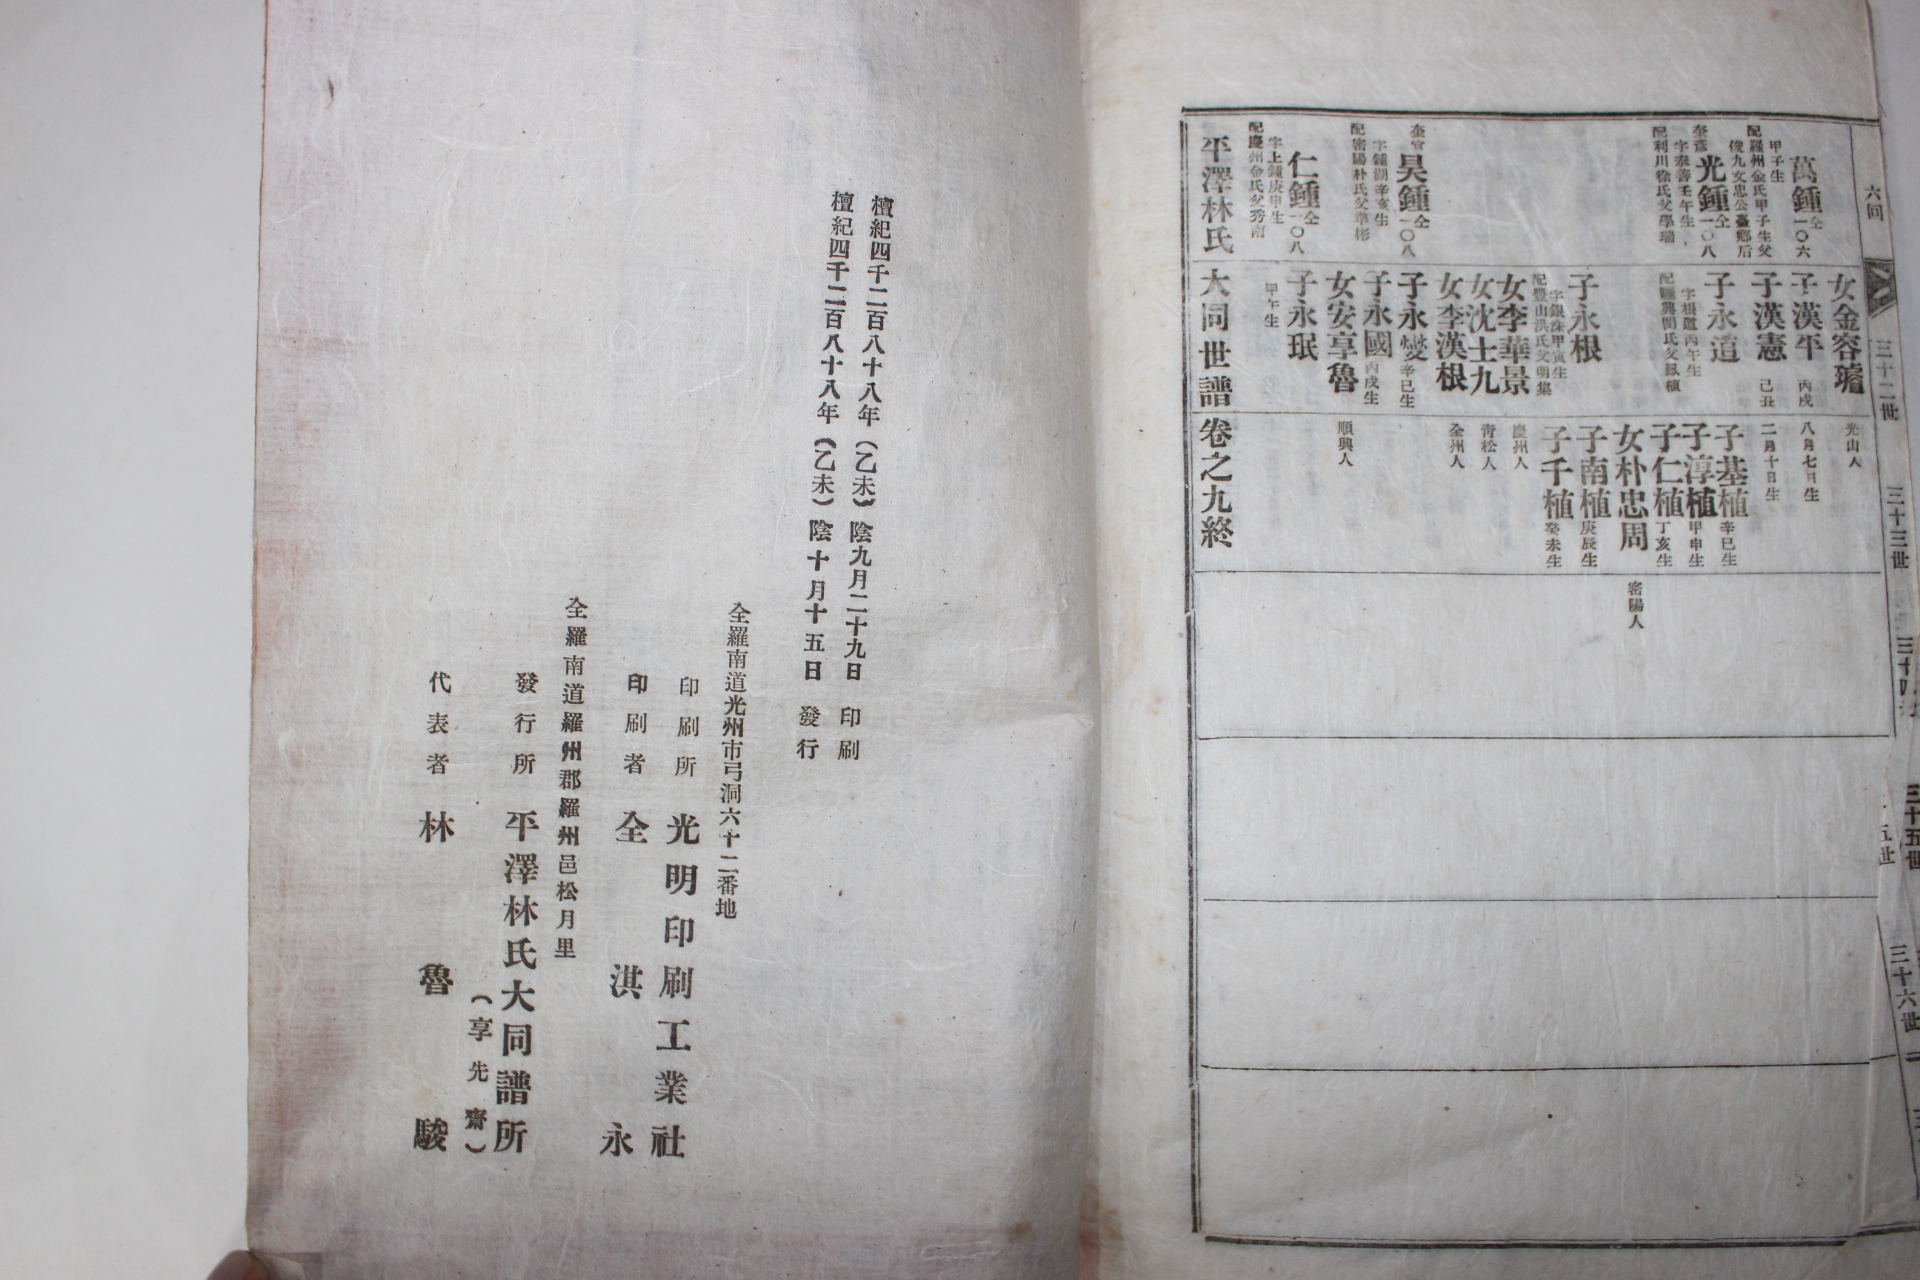 六回
三十二世
三十三世
三十五世
三十六世
萬鍾 仝一〇六
甲子生
配羅州金氏甲子生父
俊九文忠公臺鄕后
光鍾 仝一〇八
字泰善壬午生
配利川徐氏父學瑞
昊鍾 仝一〇八
字鍾湖辛亥生
配密陽朴氏父準彬
仁鍾 仝一〇八
字上鍾庚申生
配慶州金氏父秀南
女金容璿 光山人
子漢平 丙戌八月七日生
子漢憲 己丑二月十日生
子永道
字根道丙午生
配驪興閔氏父鳳植
子永根
字銀洙甲寅生
配豊山洪氏父明集
女李華景 慶州人
女沈士九 靑松人
女李漢根 全州人
子永燮 辛巳生
子永國 丙戌生
女安享魯 順興人
子永珉
甲午生
子基植 辛巳生
子淳植 甲申生
子仁植 丁亥生
女朴忠周 密陽人
子南植 庚辰生
子千植 癸未生
平澤林氏大同世譜卷之九終
檀紀四千二百八十八年(乙未)陰九月二十九日 印刷
檀紀四千二百八十八年(乙未)陰十月十五日 發行
全羅南道光州市弓洞六十二番地
印刷所 光明印刷工業社
印刷者 全淇永
全羅南道羅州郡羅州邑松月里
發行所 平澤林氏大同譜所
(享先齋)
代表者 林魯駿